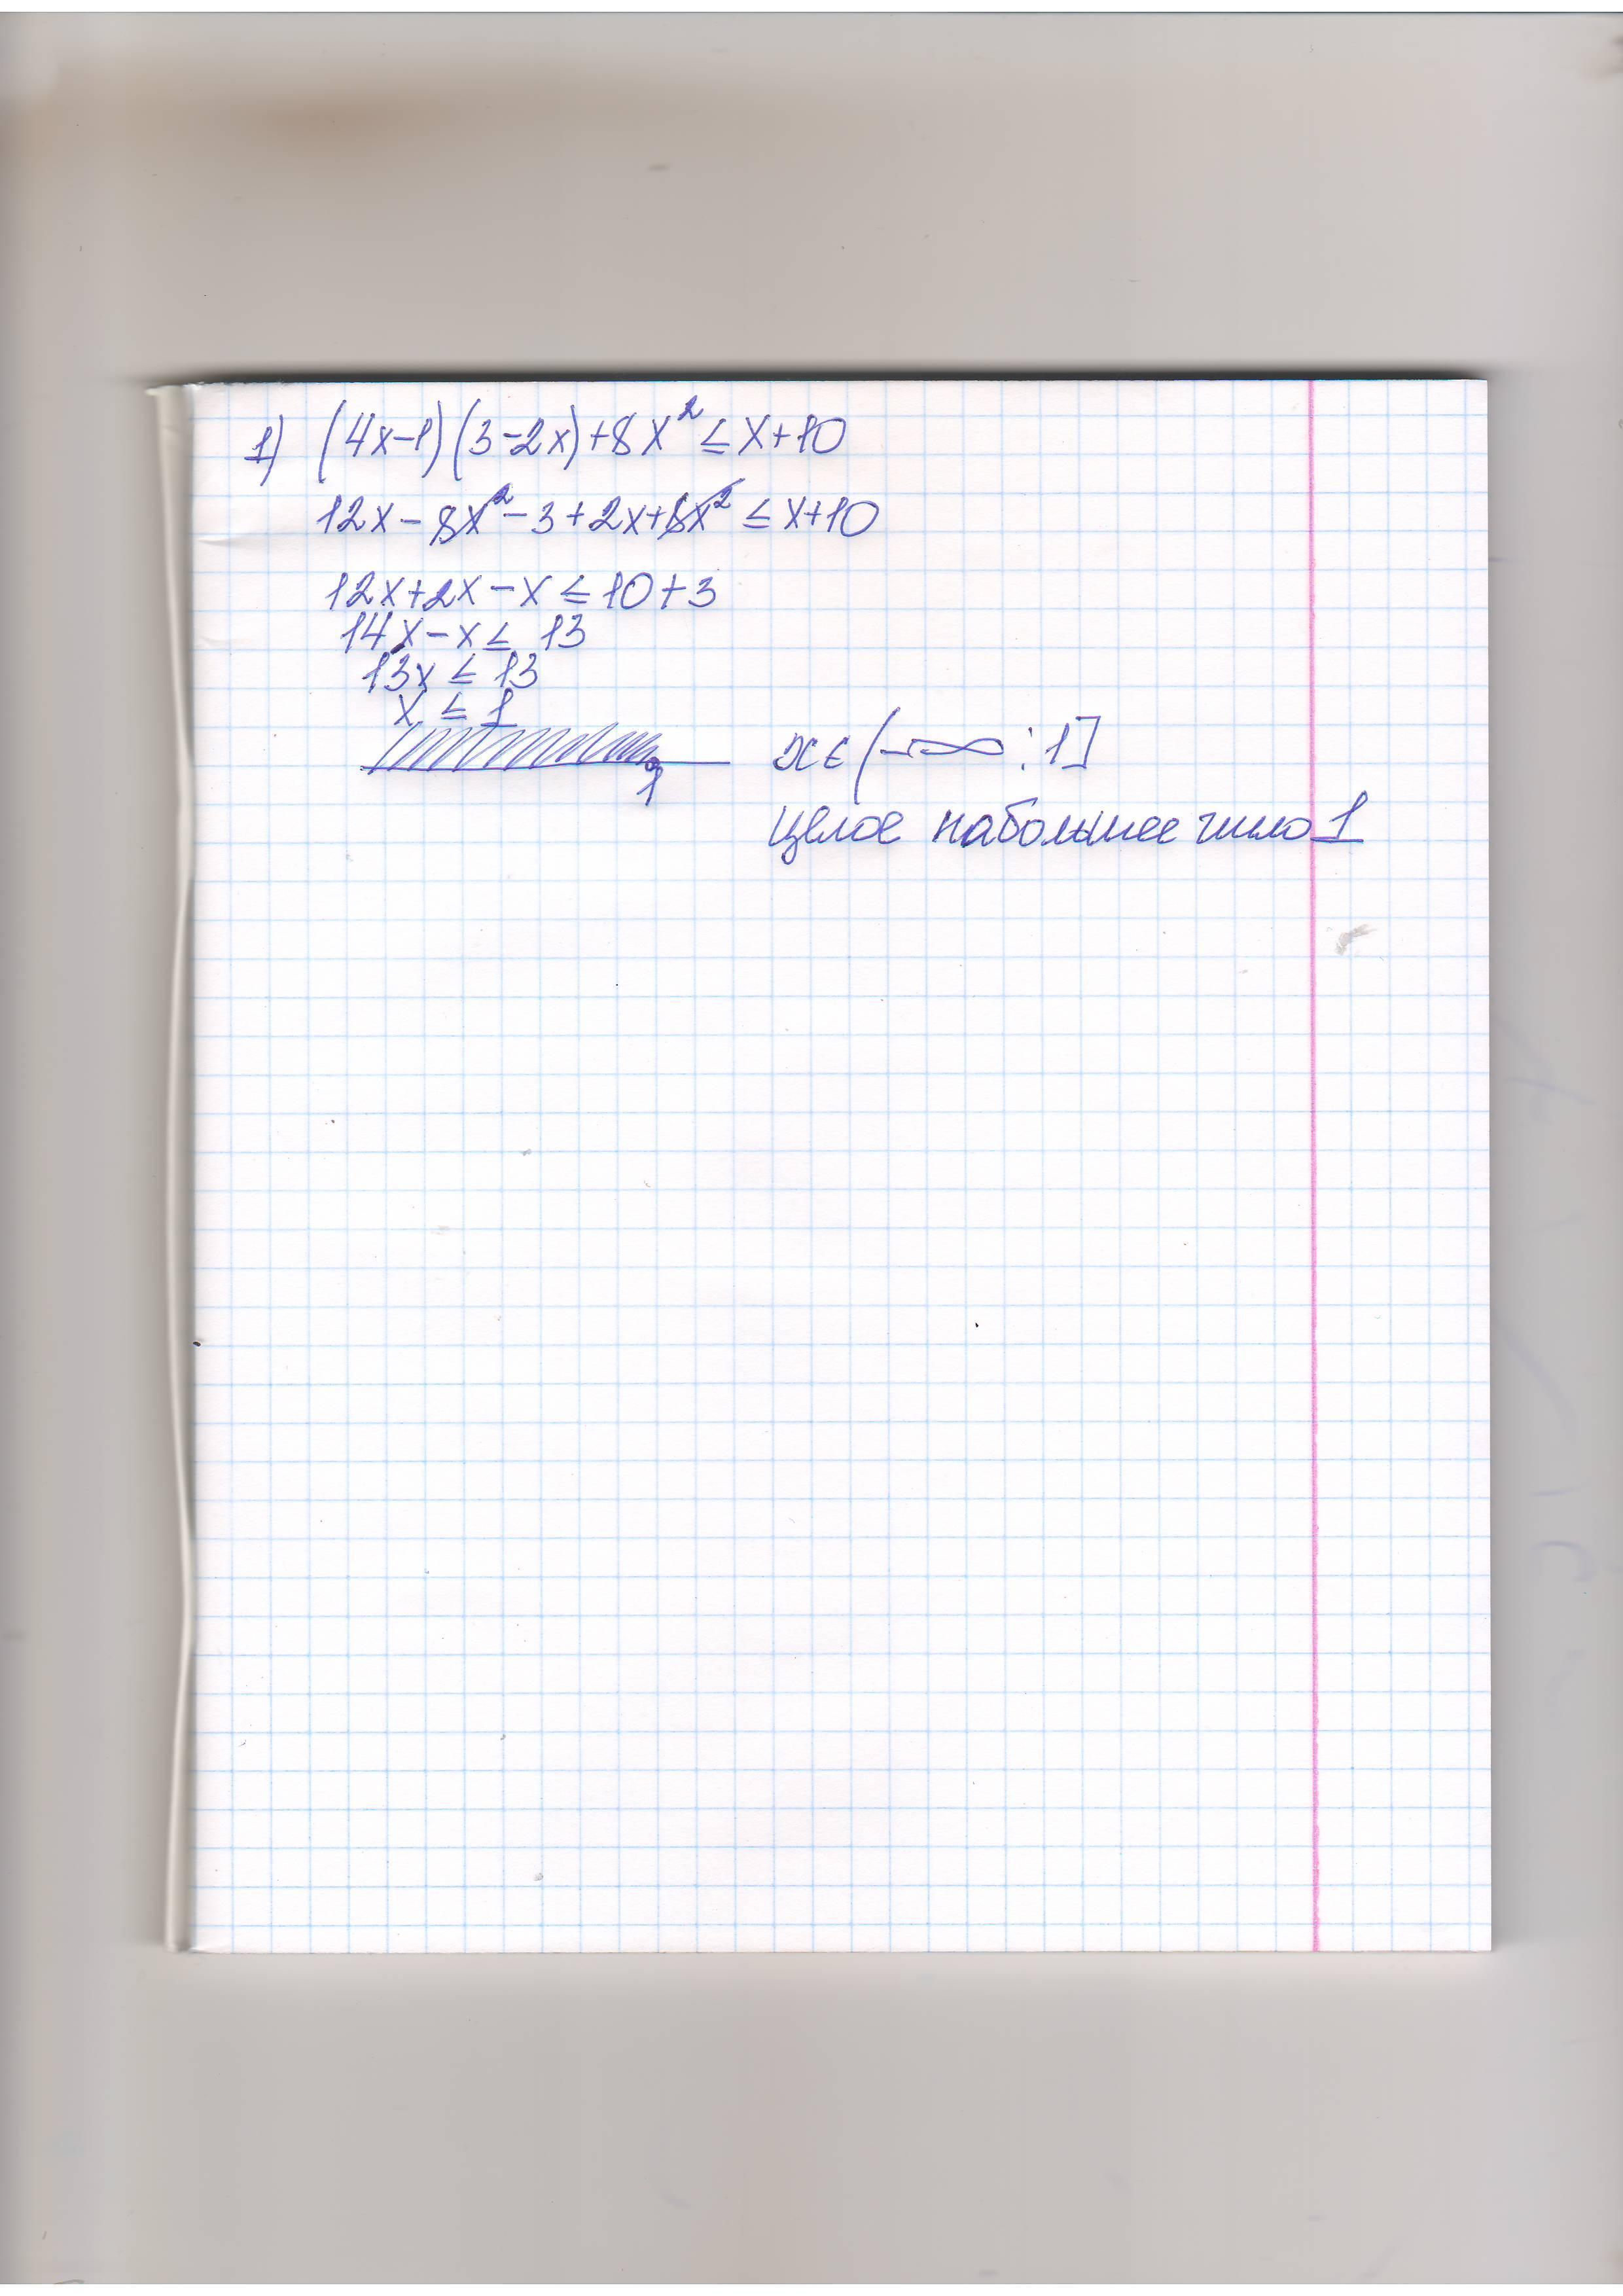 1) (4x-1)(3-2x)+8x² ≤ x+10
12x-8x²-3+2x+8x² ≤ x+10
12x+2x-x ≤ 10+3
14x-x ≤ 13
13x ≤ 13
x ≤ 1
1
x∈(-∞;1]
целое набольшее число 1